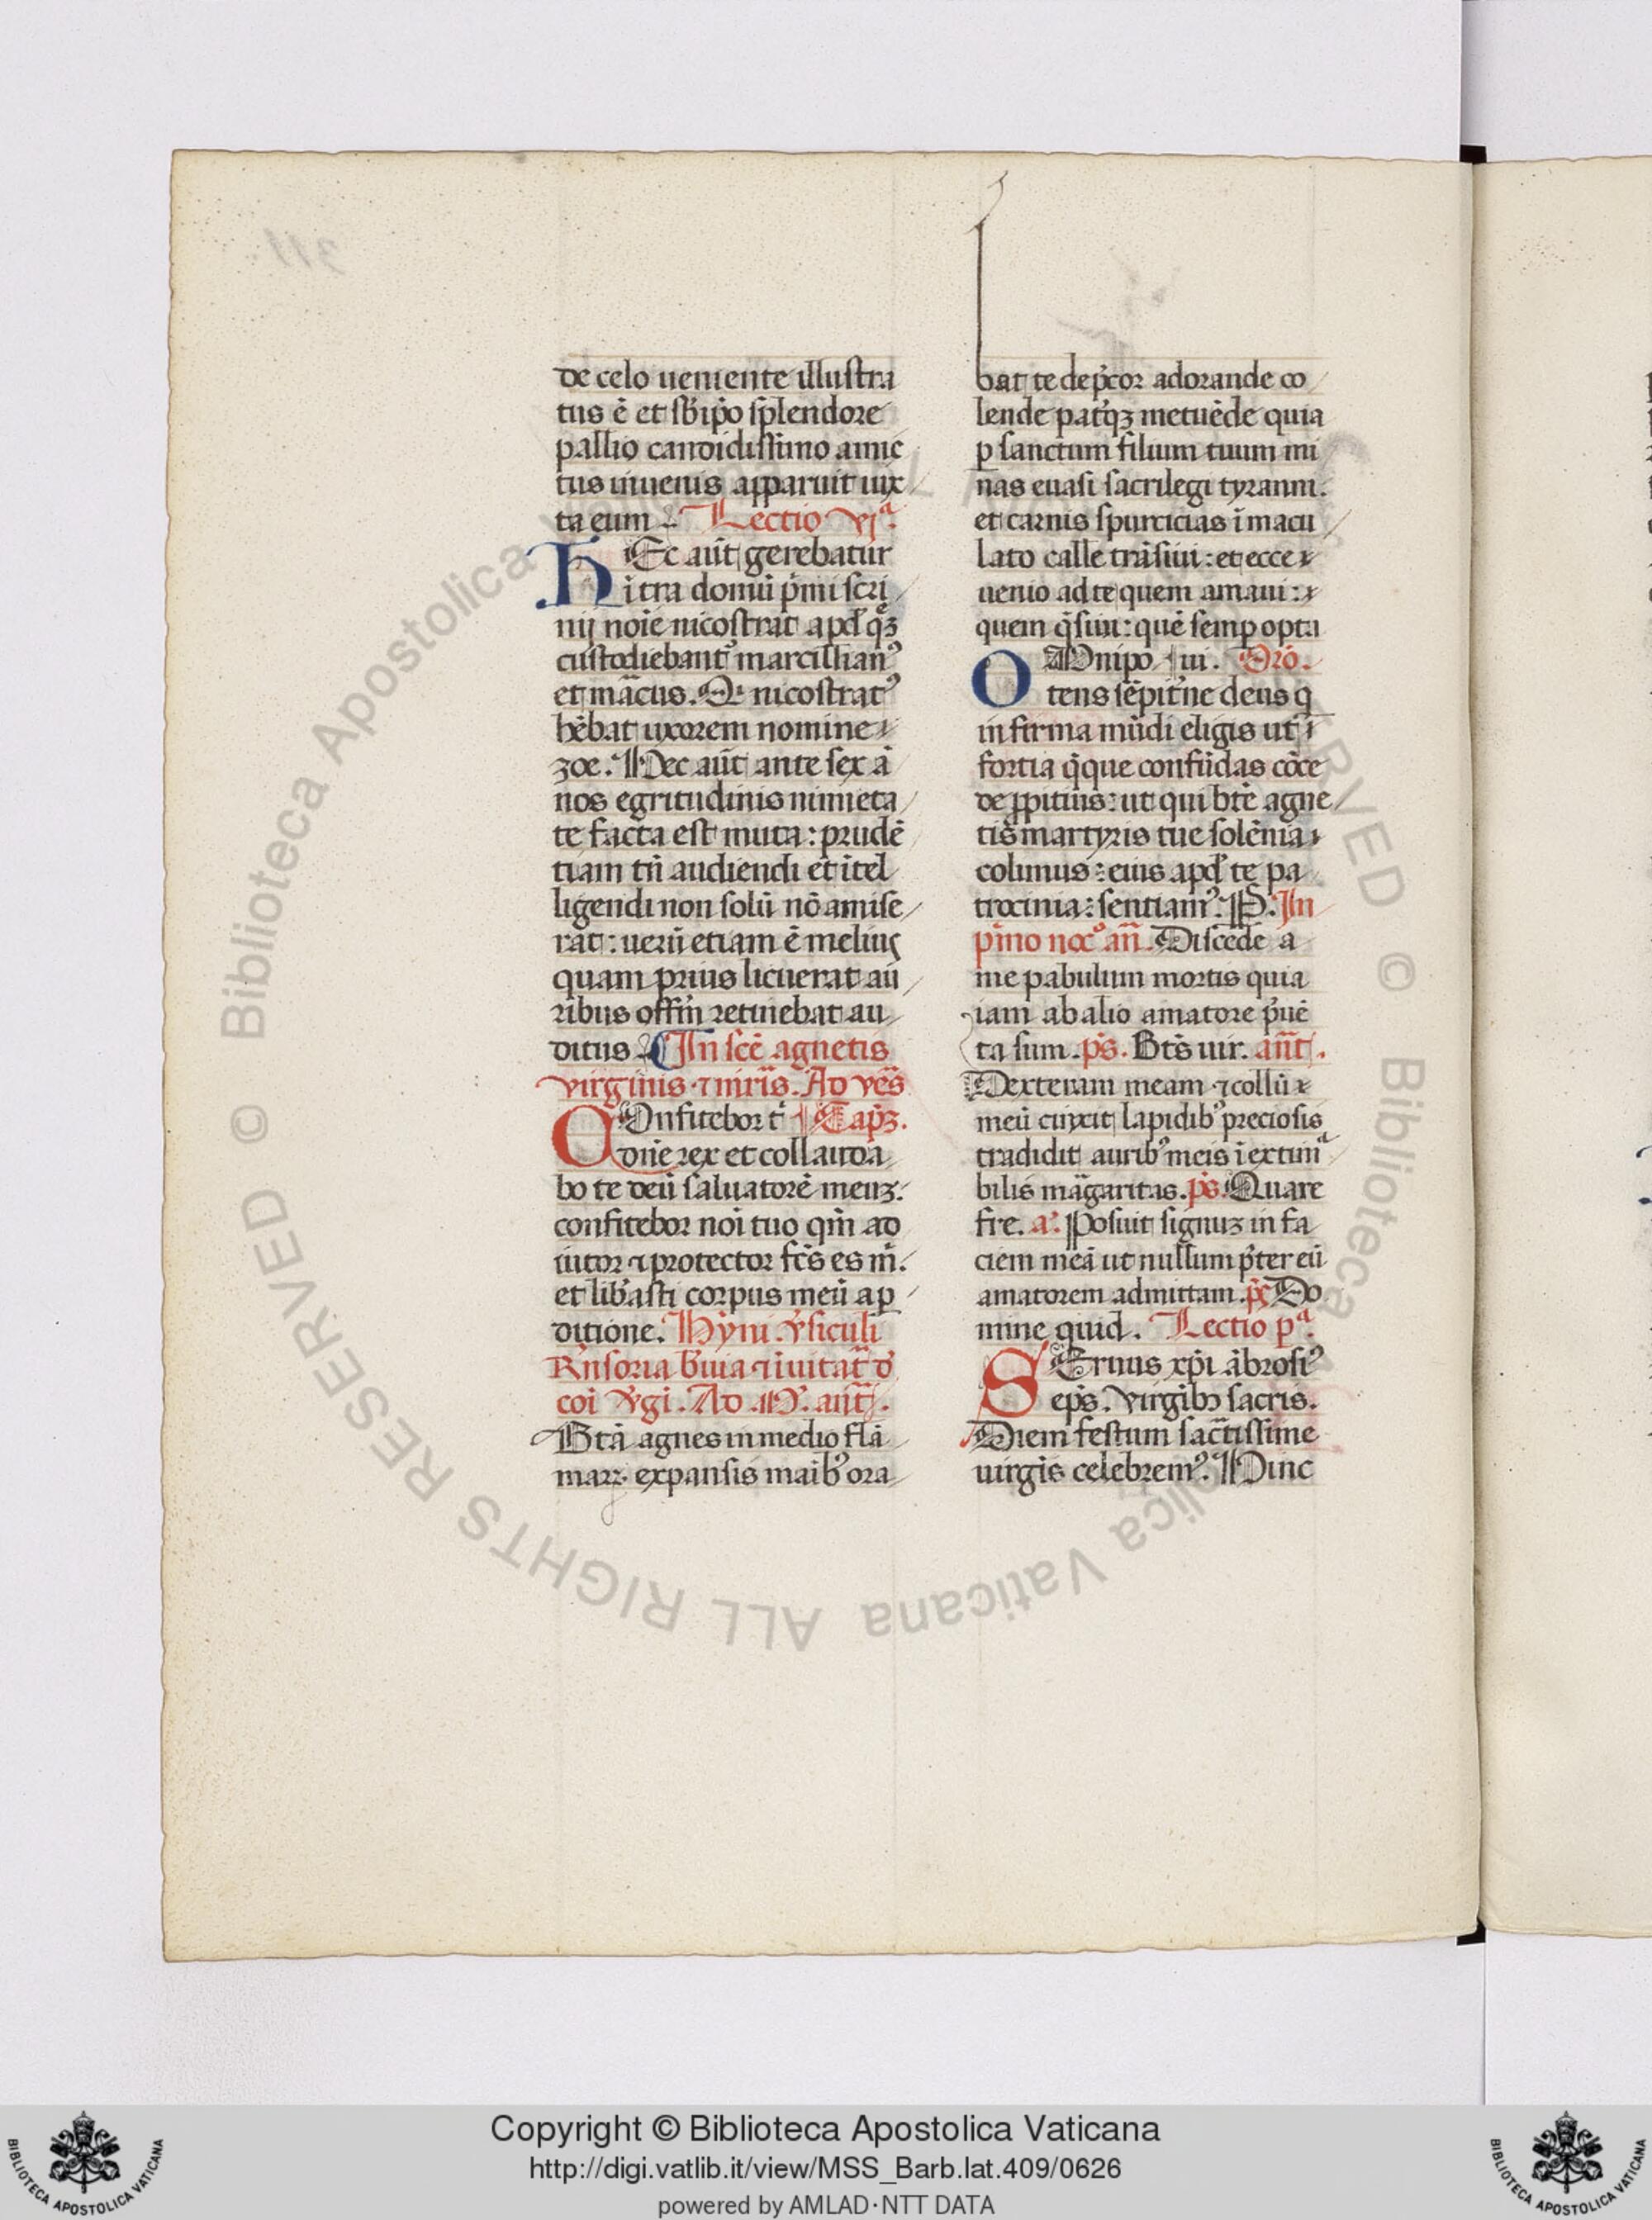 de celo ueniente illustra
tus ē et sb ipo splendore
pallio candidissimo amic
tus iuuenis apparuit iux
ta eum. Lectio vjª.
HEc aūt gerebatur
ītra domū pͥmi scri
nij noīe nicostrat apd qͣꝫ
custodiebant᷒ marcillian᷒
et mārcus. Qͥ nicostrat᷒
hēbat uxorem nomine
zoe. Hec aūt ante sex ā
nos egritudinis nimieta
te facta est muta: prudē
tiam tn̄ audiendi et ītel
ligendi non solū nō amise
rat: uerū etiam ē melius
quam prius licuerat au
ribus offm̄ retinebat au
ditus. ¶ In scē agnetis
virginis ⁊ mr̄is. Ad ves̄
COnfitebor tͥ Capꝫ.
dn̄e rex et collauda
bo te deū saluatorē meuꝫ.
confitebor noī tuo qm̄ ad
iutor ⁊ protector fc̄s es m̄.
et libasti corpus meū a p
ditione. Hym. v̄siculi
Rn̄soria b̄uia ⁊ īuitat̄ d
coī v̄gi. Ad .M̄. ant̄.
Btā agnes in medio flā
marꝝ expansis maīb᷒ ora
bat te dep̄cor adorande co
lende patqꝫ metuēde quia
ꝑ sanctum filium tuum mi
nas euasi sacrilegi tyranni.
et carnis spurcicias īmacu
lato calle trāsiui: et ecce
uenio ad te quem amaui:
quem q̄siui: quē semp opta
OMnipo ui. Orō.
tens sēpitne deus q
infirma mūdi eligis ut
fortia q̄que confūdas cōce
de ꝓpitius: ut qui btē agne
tis martyris tue solēnia
colimus: eius apd te pa
trocinia: sentiam᷒. P. In
pͥmo noc᷒ an̄. Discede a
me pabulum mortis quia
iam ab alio amatore p̄uē
ta sum. ps̄. Bt̄s uir. ant̄.
Dexteram meam ⁊ collū
meū cinxit lapidib᷒ preciosis
tradidit aurib᷒ meis īextimª
bilis māgaritas. ps̄. Quare
fre. a. Posuit signuꝫ in fa
ciem meā ut nullum p̄ter eū
amatorem admittam. ps̄ Do
mine quid. Lectio pª.
SEruus xp̄i ābrosi᷒
ep̄s. virgibꝫ sacris.
Diem festum sac̄tissime
uirgīs celebrem᷒. Hinc
311
© Biblioteca Apostolica Vaticana ALL RIGHTS RESERVED
Copyright © Biblioteca Apostolica Vaticana
http://digi.vatlib.it/view/MSS_Barb.lat.409/0626
powered by AMLAD·NTT DATA
BIBLIOTECA APOSTOLICA VATICANA
BIBLIOTECA APOSTOLICA VATICANA